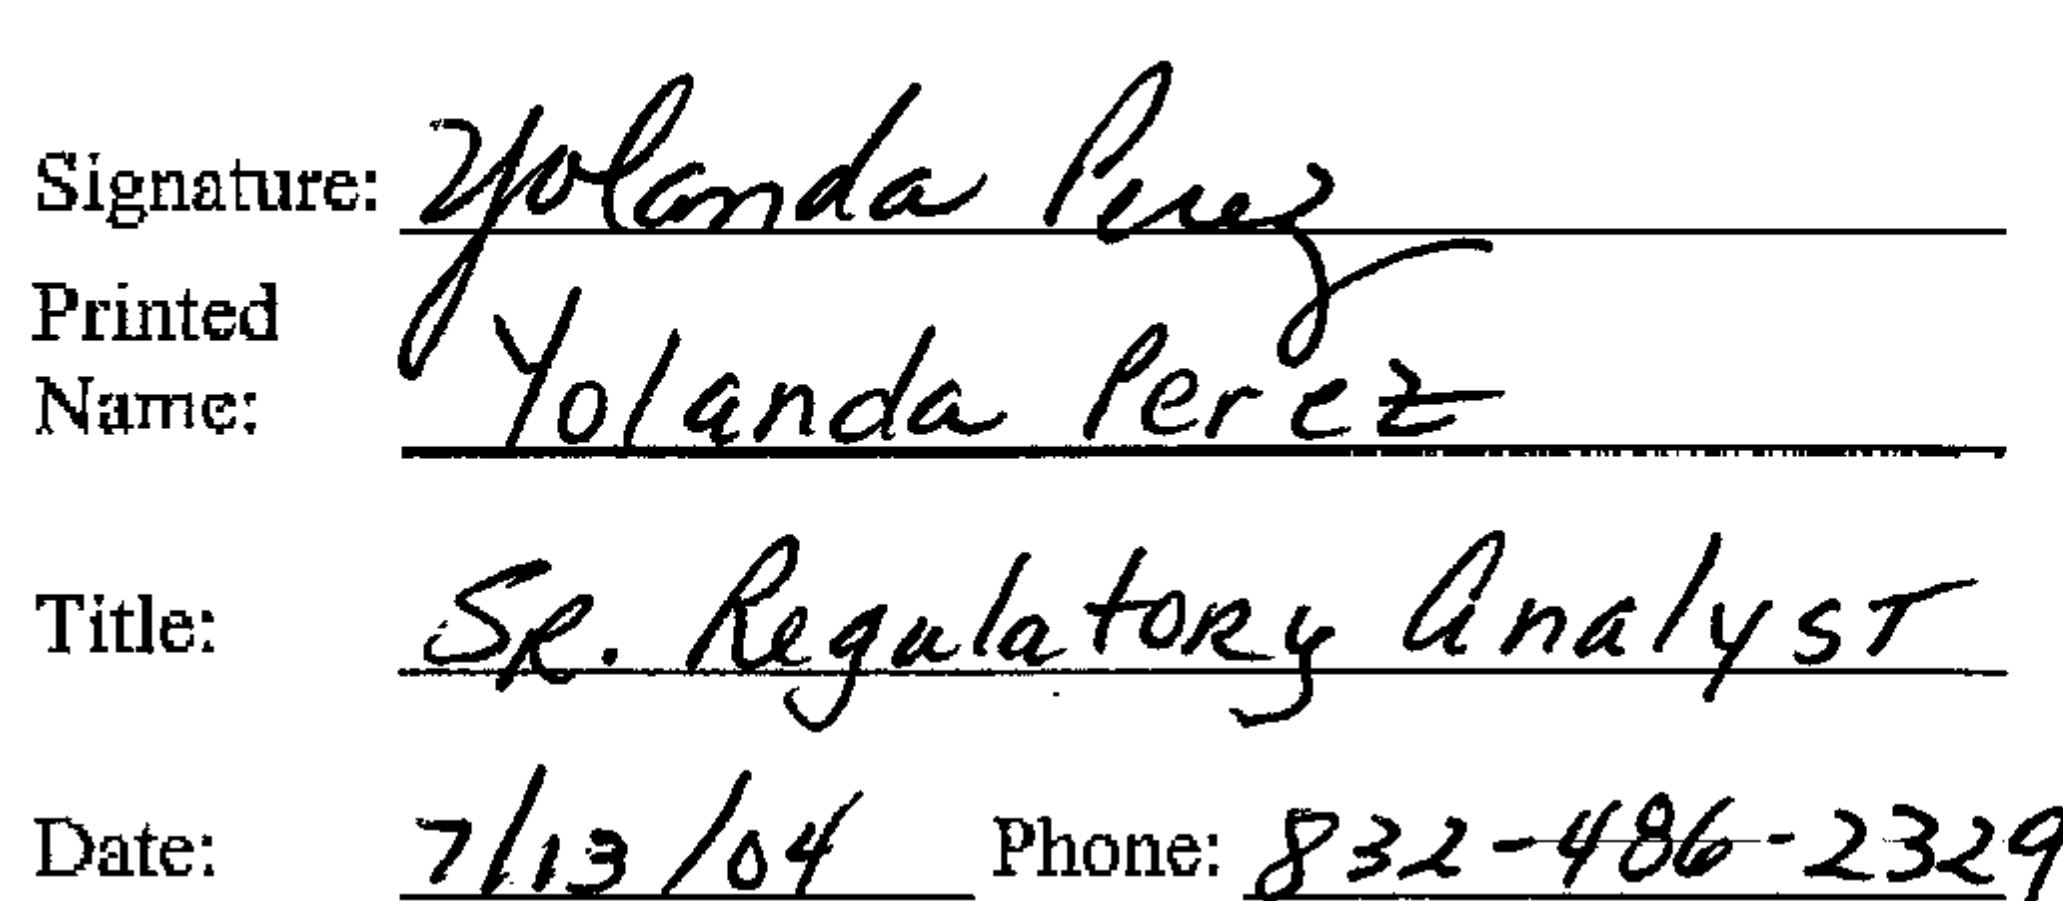 Signature: Yolanda Perez
Printed
Name: Yolanda Perez
Title: SR. Regulatory Analyst
Date: 7/13/04 Phone: 832-486-2329